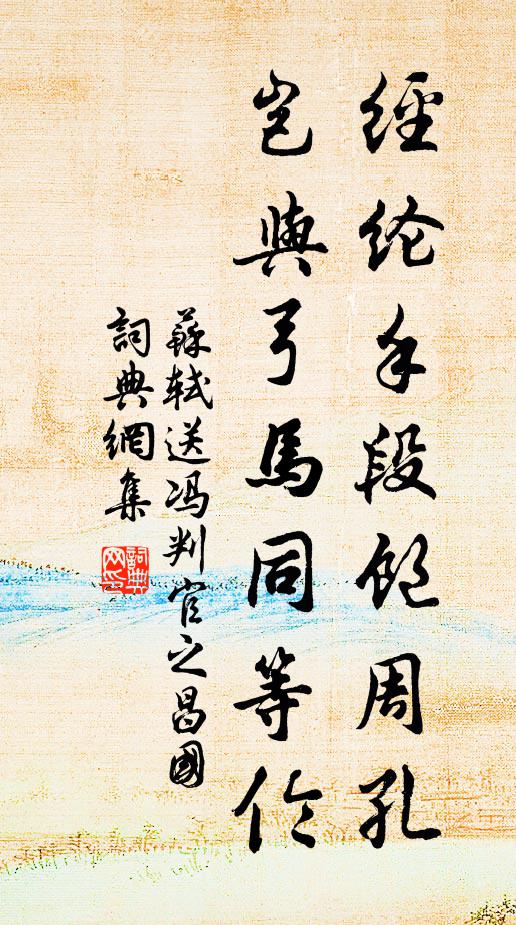 經纶手段飽周孔
豈與弓馬同等伦
蘇軾送馮判官之昌國
詞典網集
詞典网印